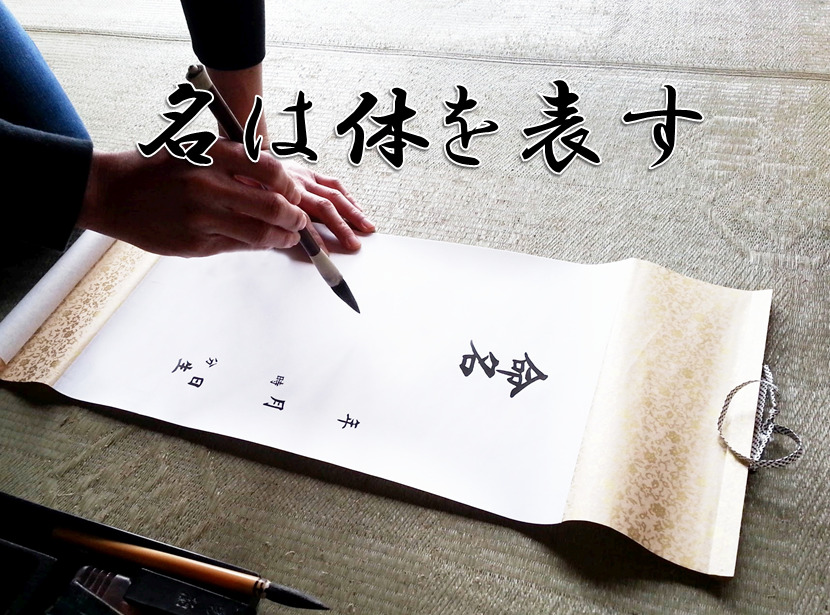 名は体を表す
命名
年月日
時分
生